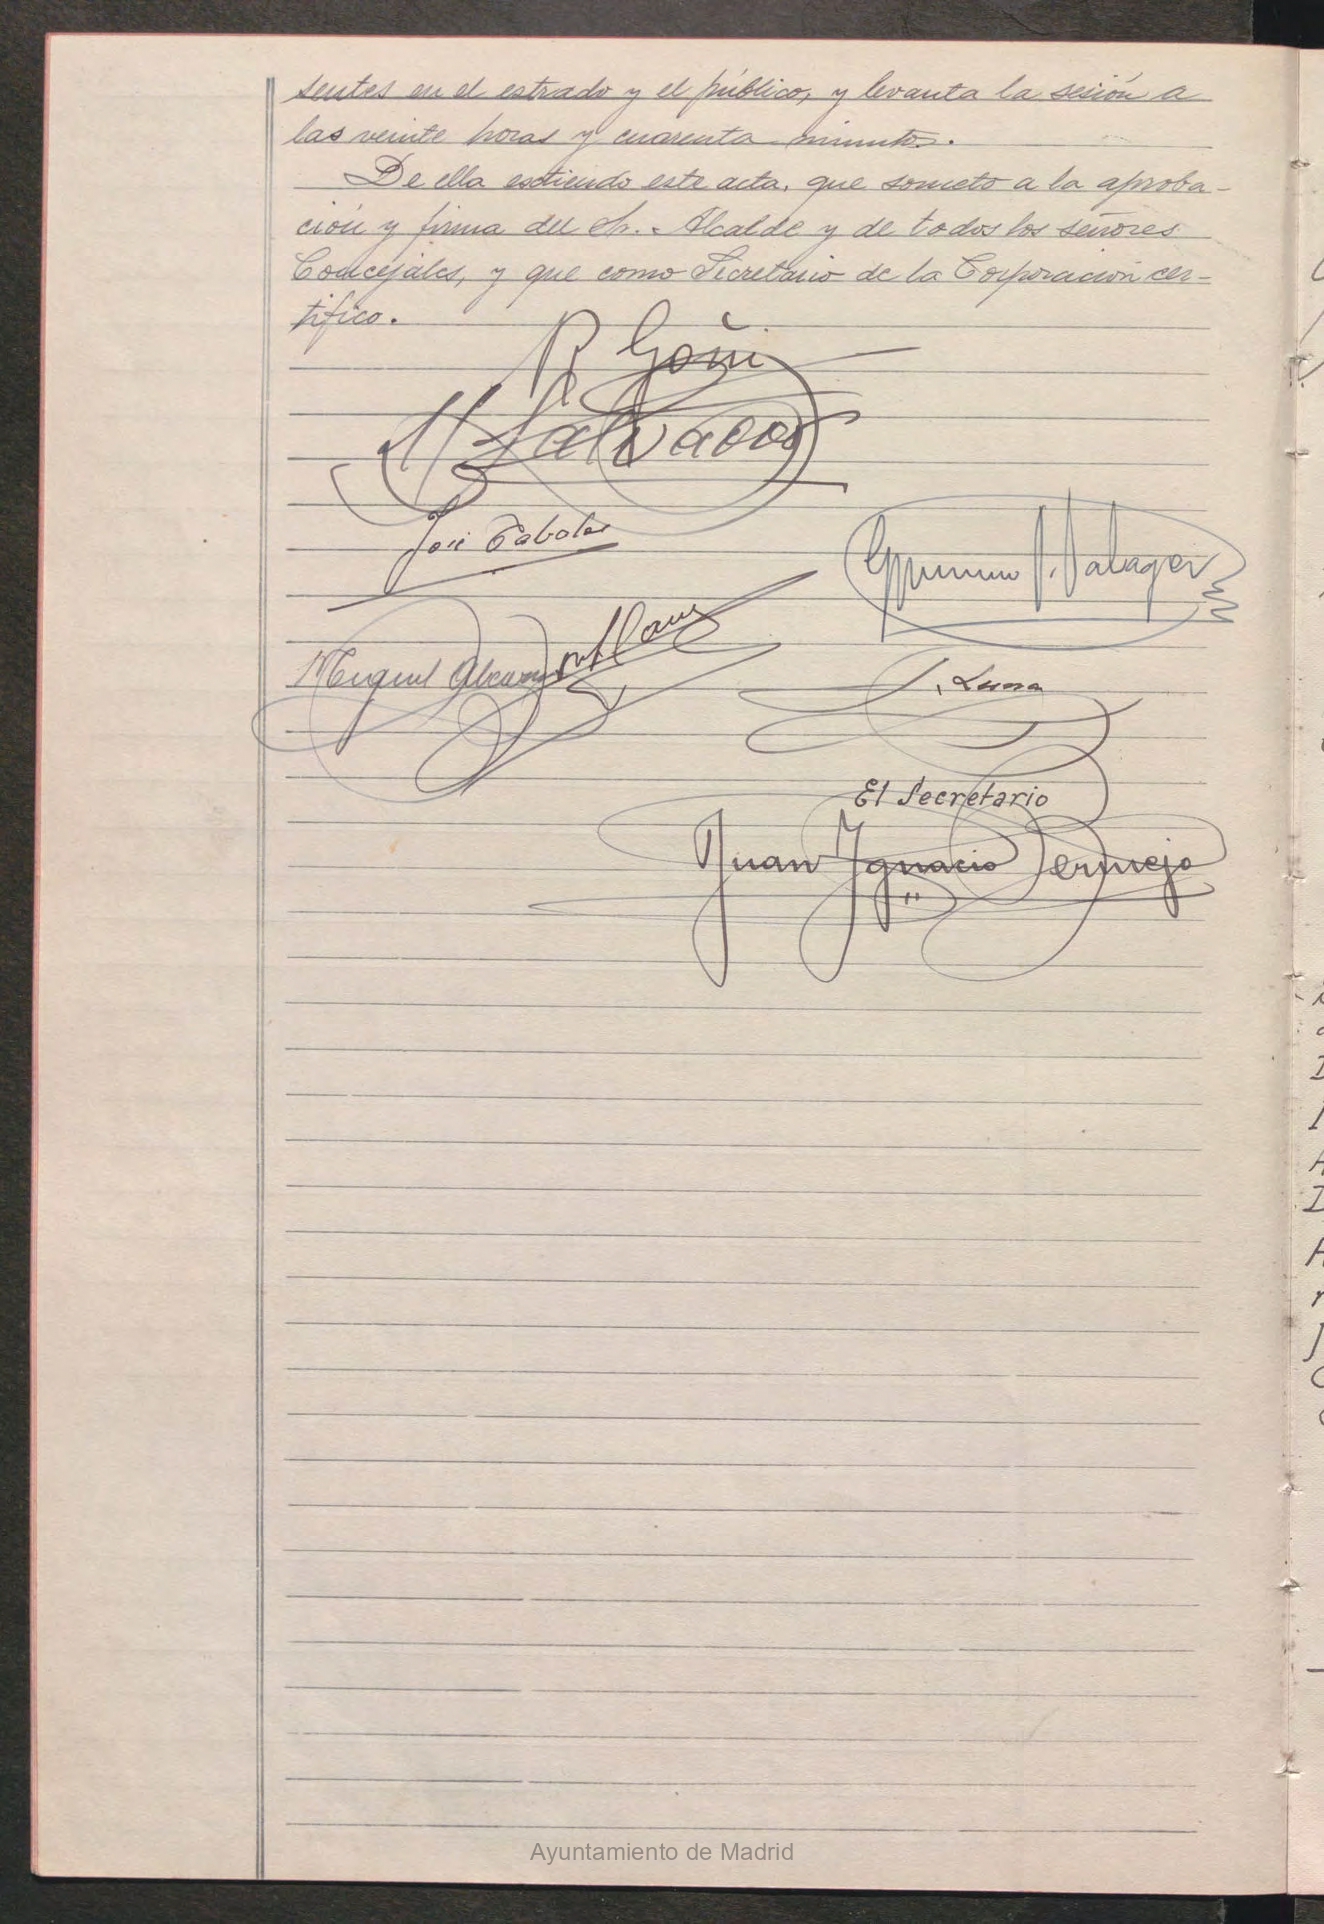 sentes en el estrado y el público, y levanta la sesión a
las veinte horas y cuarenta minutos.
De ella extiendo este acta, que someto a la aproba-
ción y firma del Sr. Alcalde y de todos los señores
Concejales, y que como Secretario de la Corporación cer-
tifico.
R Goñi
Salvador
José
Miguel
J. Luna
El Secretario
Juan Ignacio Bermejo
Ayuntamiento de Madrid